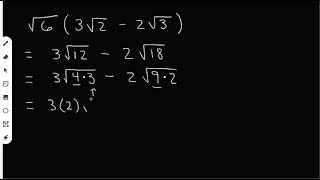 √6 ( 3√2 - 2√3 )
= 3√12 - 2√18
= 3√4·3 - 2√9·2
= 3(2)